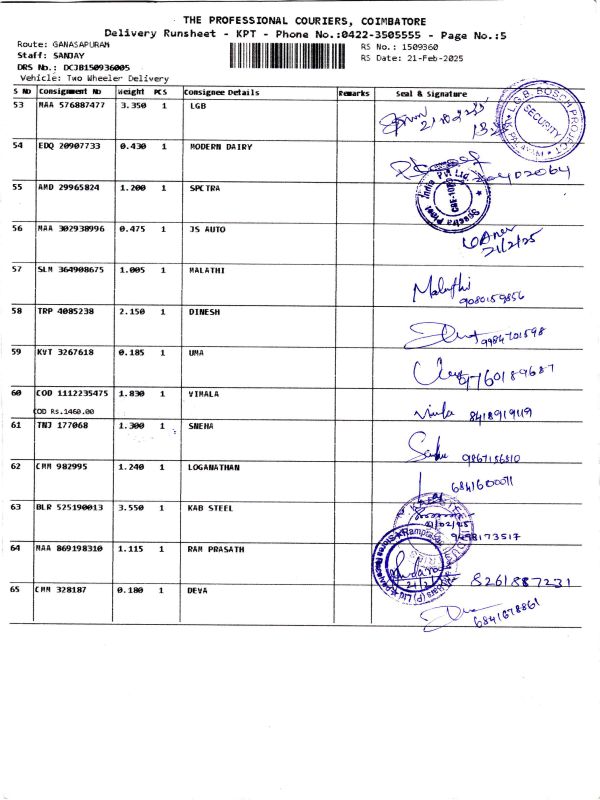 THE PROFESSIONAL COURIERS, COIMBATORE
Delivery Runsheet - KPT - Phone No.:0422-3505555 - Page No.:5
Route: GANASAPURAM RS No.: 1509360
Staff: SANJAY RS Date: 21-Feb-2025
DRS No.: DCJB150936005
Vehicle: Two Wheeler Delivery
S No Consignment No Weight PCS Consignee Details Remarks Seal & Signature
53 MAA 576887477 3.350 1 LGB
L.G.B. BOSCH PROJECT SECURITY
54 EDQ 20907733 0.430 1 MODERN DAIRY
55 AMD 29965824 1.200 1 SPCTRA
India Pvt Ltd.
56 MAA 302938996 0.475 1 JS AUTO
21/2/25
57 SLM 364908675 1.005 1 MALATHI Malathi
9080159856
58 TRP 4085238 2.150 1 DINESH
9984701598
59 KVT 3267618 0.185 1 UMA
60 COD 1112235475 1.830 1 VIMALA 8418919119
COD Rs.1460.00
61 TNJ 177068 1.300 1 SNEHA
9867156810
62 CMM 982995 1.240 1 LOGANATHAN
63 BLR 525190013 3.550 1 KAB STEEL
21/02/25
9498173517
64 MAA 869198310 1.115 1 RAM PRASATH
8261887231
65 CMM 328187 0.180 1 DEVA
6841678861